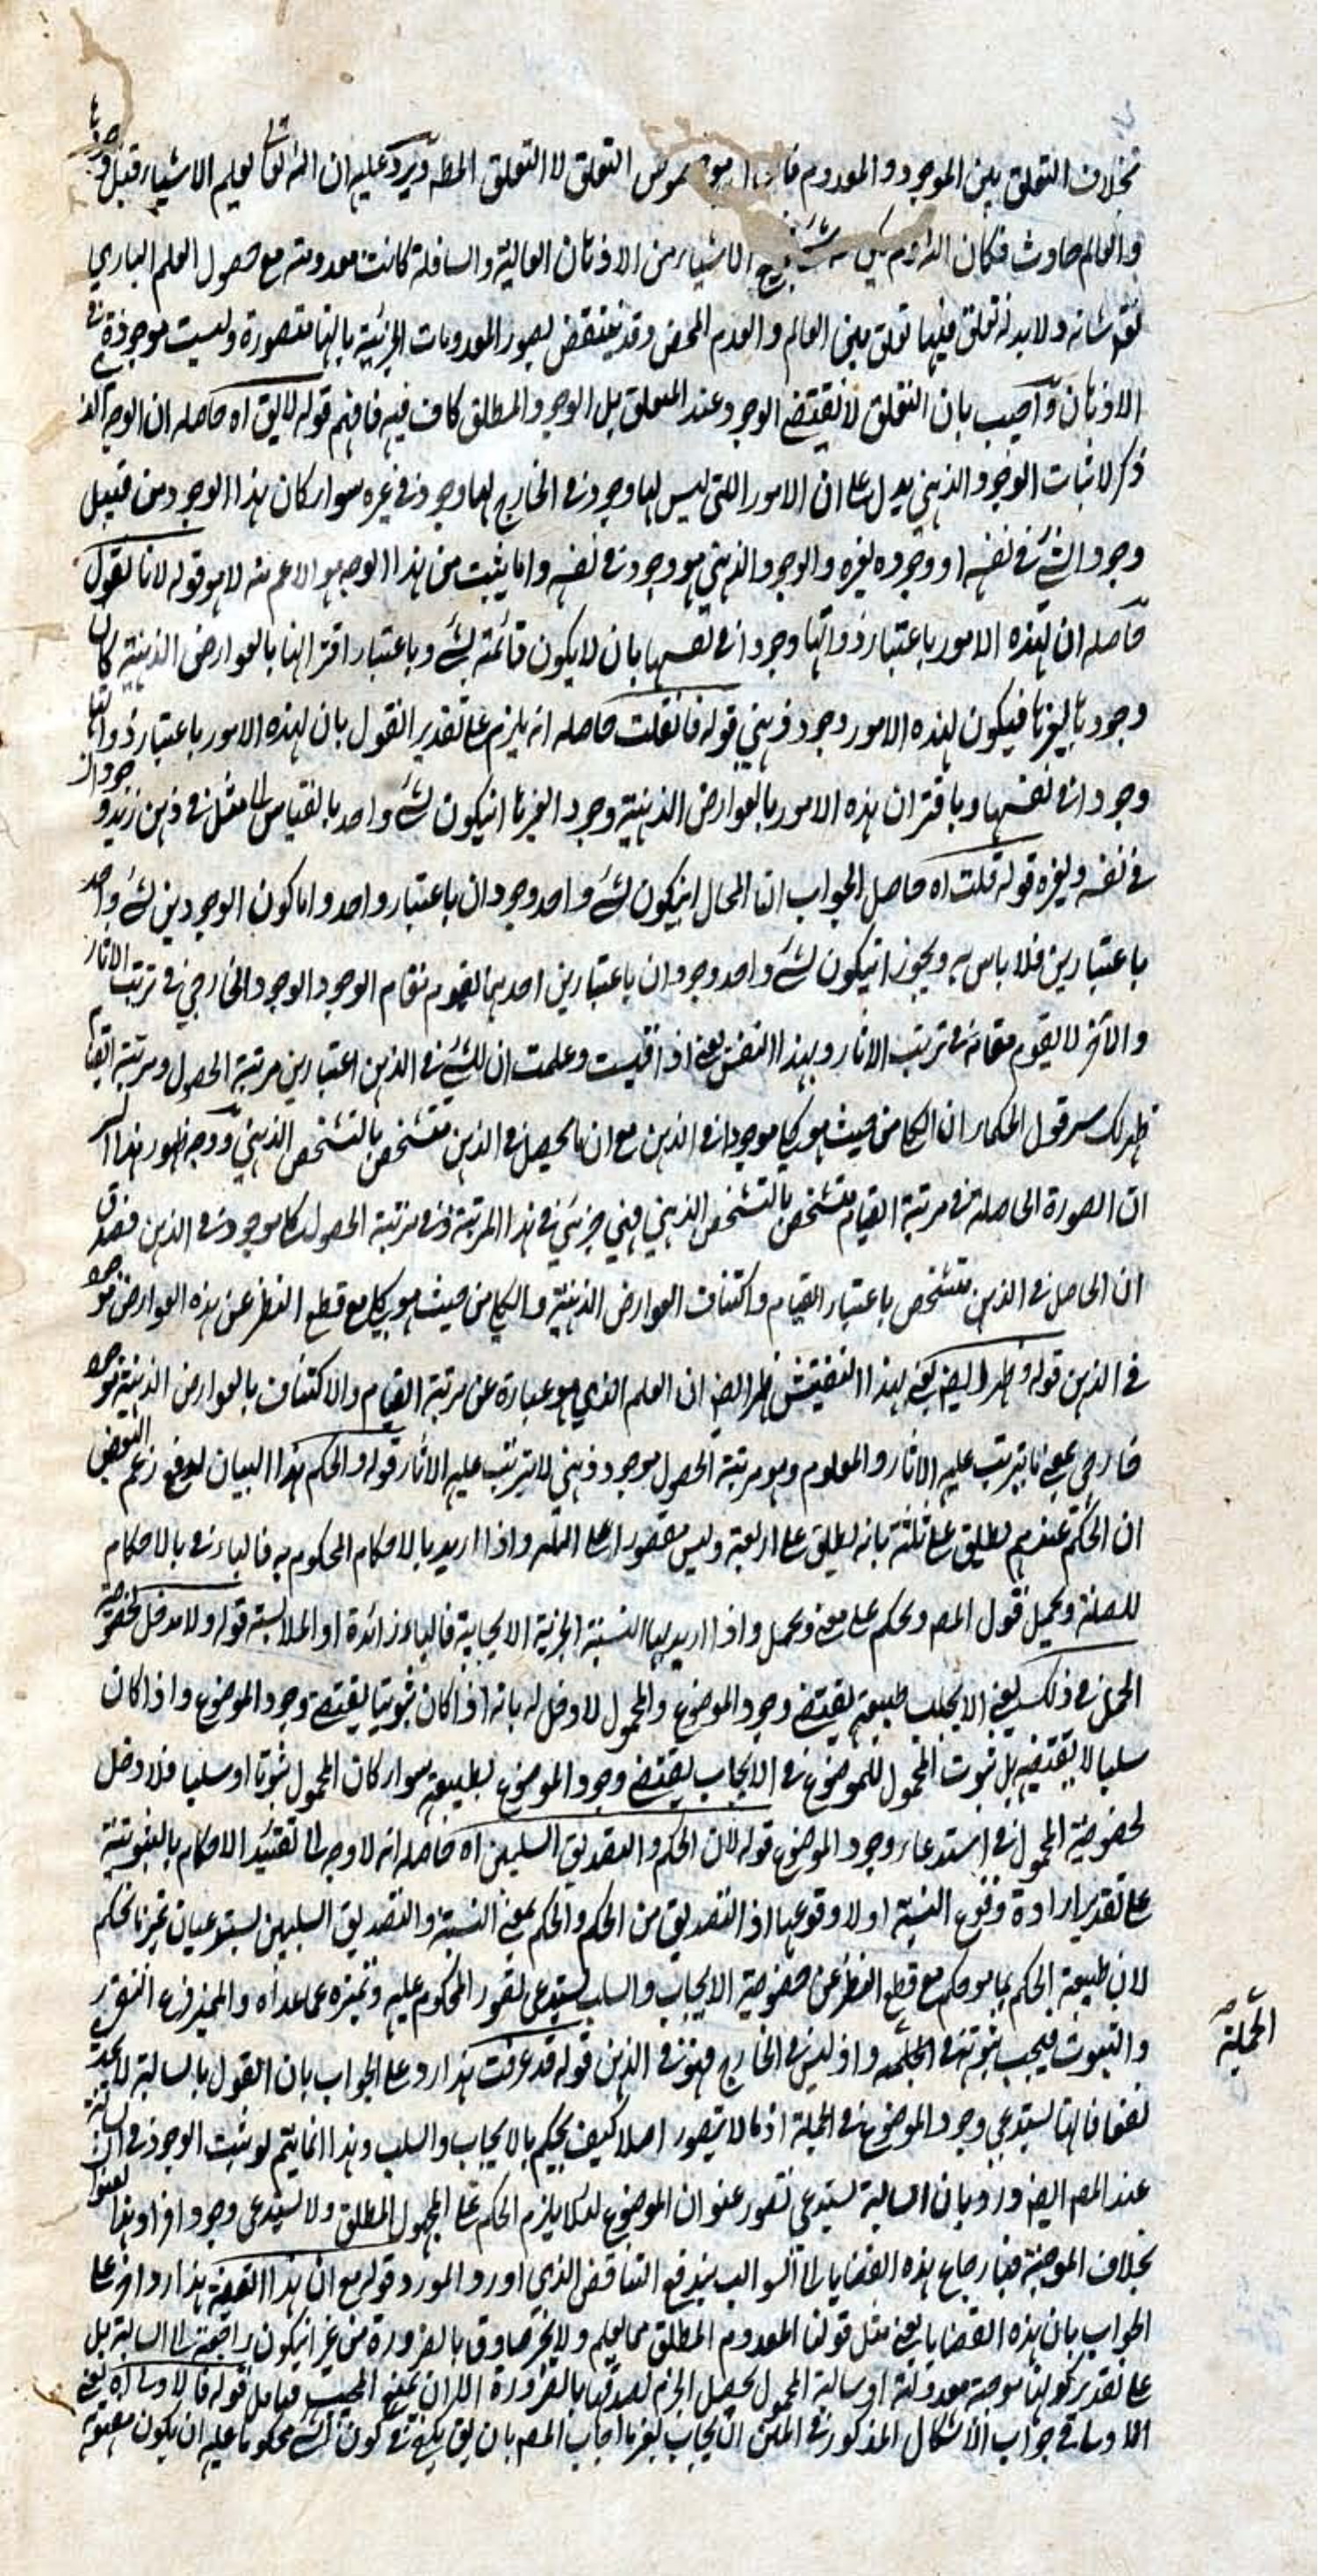 بخلاف التعلق بين الموجود والمعدوم التعلق لا التعلق المط ويرد عليه ان الله تعالى يعلم الاشياء قبل
والعالم حادث فكان الله ولم يكن معه شئ الاشياء من الاذهان العالية والسافلة كانت معدومة مع حصول العلم الباري
شانه ولا بد له تعلق فيلزم تعلق بين العالم والعدم المحض وقد ينتقض بصور المعدومات الجزئية بانها متصورة وليست موجودة في
الاذهان واجيب بان التعلق لا يقتضي الوجود عند المتعلق بل الوجود المطلق كاف فيه فافهم قوله لا يق اه حاصله ان الوجه الذ
ذكر لاثبات الوجود الذهني يدل على ان الامور التي ليس لها وجود في الخارج لها وجود في غيره سواء كان هذا الوجود من قبيل
وجود الشئ في نفسه او وجوده لغيره والوجود الذهني هو وجود في نفسه وما يثبت من هذا الوجه هو الاعم منه لا هو قوله لانا نقول
حاصله ان لهذه الامور باعتبار ذواتها وجودا في نفسها بان لا يكون قائمة بشئ وباعتبار اقترانها بالعوارض الذهنية كان
وجودها لغيرها فيكون لهذه الامور وجود ذهني قوله فان قلت حاصله انه يلزم على تقدير القول بان لهذه الامور باعتبار ذواتها
وجودا في نفسها وباقتران هذه الامور بالعوارض الذهنية وجودا لغيرها ان يكون لشئ واحد بالقياس الى مثل في ذهن زيد وجودان
في نفسه ولغيره قوله قلت اه حاصل الجواب ان المحال ان يكون لشئ واحد وجودان باعتبار واحد واما كون الوجودين لشئ واحد
باعتبارين فلا باس به ويجوز ان يكون لشئ واحد وجودان باعتبارين احدهما يقوم مقام الوجود الوجود الخارجي في ترتب الاثار
والآخر لا يقوم مقامه في ترتب الاثار وبهذا التفتيش يعني اذا وعلمت ان للشئ في الذهن اعتبارين مرتبة الحصول ومرتبة القيام
ظهر لك سر قول الحكماء ان الكلي من حيث هو كلي موجود في الذهن مع ان ما يحصل في الذهن متشخص بالتشخص الذهني ووجه ظهور هذا السر
ان الصورة الحاصلة في مرتبة القيام متشخص بالتشخص الذهني فهي جزئي في هذا المرتبة وفي مرتبة الحصول كلي موجود في الذهن فصدق
ان الحاصل في الذهن متشخص باعتبار القيام واكتناف العوارض الذهنية والكلي من حيث هو كلي مع قطع النظر عن هذه العوارض موجود
في الذهن قوله وظهر ايضا يعني بهذا التفتيش ظهر ايضا ان العلم الذي هو عبارة عن مرتبة القيام والاكتناف بالعوارض الذهنية موجود
خارجي بمعنى ما يترتب عليه الاثار والمعلوم وهو مرتبة الحصول موجود ذهني لا يترتب عليه الاثار قوله والحكم هذا البيان لدفع زعم البعض
ان الحكم عندهم يطلق على ثلثة بانه يطلق على اربعة وليس مقصورا على الثلثة واذا اريد بالاحكام المحكوم به فالباء في بالاحكام
للصلة ويحمل قول المص ويحكم على معنى ويحمل واذا اريد بها النسبة الخبرية الايجابية فالباء زائدة او للملابسة قوله ولا مدخل لخصوصية
الحمل في ذلك يعني الايجاب بطبيعته يقتضي وجود الموضوع والمحمول لا دخل له بانه اذا كان ثبوتيا يقتضي وجود الموضوع واذا كان
سلبيا لا يقتضيه بل ثبوت المحمول للموضوع في الايجاب يقتضي وجود الموضوع بطبيعته سواء كان المحمول ثبوتيا او سلبيا فلا دخل
لخصوصية المحمول في استدعاء وجود الموضوع قوله لان الحكم والتصديق السلبيين اه حاصله انه لا وجه الى تقييد الاحكام بالثبوتية
على تقدير ارادة وقوع النسبة او لا وقوعها اذ التصديق من الحكم والحكم بمعنى النسبة والتصديق السلبيين يستدعيان تميز ما يحكم
لان طبيعة الحكم بما هو حكم مع قطع النظر عن خصوصية الايجاب والسلب يستدعي تصور المحكوم عليه وتميزه عما عداه والتميز فرع التقرر
والثبوت فيجب ثبوته في الجملة واذ ليس في الخارج فهو في الذهن قوله قد عرفت هذا رد على الجواب بان القول بالسالبة لا يجدي
نفعا فانها يستدعي وجود الموضوع في الجملة اذ ما لا يتصور اصلا كيف يحكم بالايجاب والسلب وهذا انما يتم لو ثبت الوجود في السالبة
عند المص ايضا ورد بان السالبة يستدعي تصور عنوان الموضوع لئلا يلزم الحكم على المجهول المطلق ولا يستدعي وجود افراد هذا العنوان
بخلاف الموجبة فبارجاع هذه القضايا الى السوالب يندفع التناقض الذي اورد المورد قوله مع ان هذا القضية هذا رد آخر على
الجواب بان هذه القضايا يعني مثل قولنا المعدوم المطلق مما يعلم ولا يخبر صادق بالضرورة من غير ان يكون راجعة الى السالبة بل
على تقدير كونها موجبة معدولة او سالبة المحمول يحصل الجزم بصدقها بالضرورة اللهم الا ان يمنع المجيب فتامل قوله فالاولى اه يعني
الاولى في جواب الاشكال المذكور في المتن ان يجاب بغير ما اجاب المص بان يق يكفي في كون الشئ محكوما عليه ان يكون مفهومه
الجملية